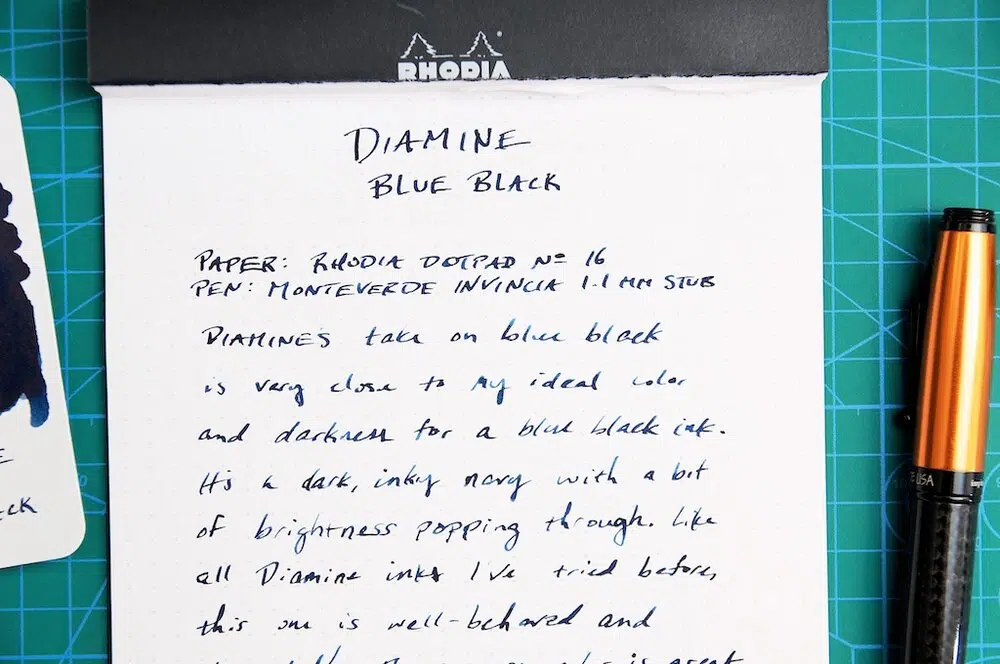 RHODIA
DIAMINE
BLUE BLACK
PAPER: RHODIA DOTPAD Nº 16
PEN: MONTEVERDE INVINCIA 1.1 MM STUB
DIAMINE'S take on blue black
is very close to my ideal color
and darkness for a blue black ink.
It's a dark, inky navy with a bit
of brightness popping through. Like
all Diamine inks I've tried before,
this one is well-behaved and
is great
USA